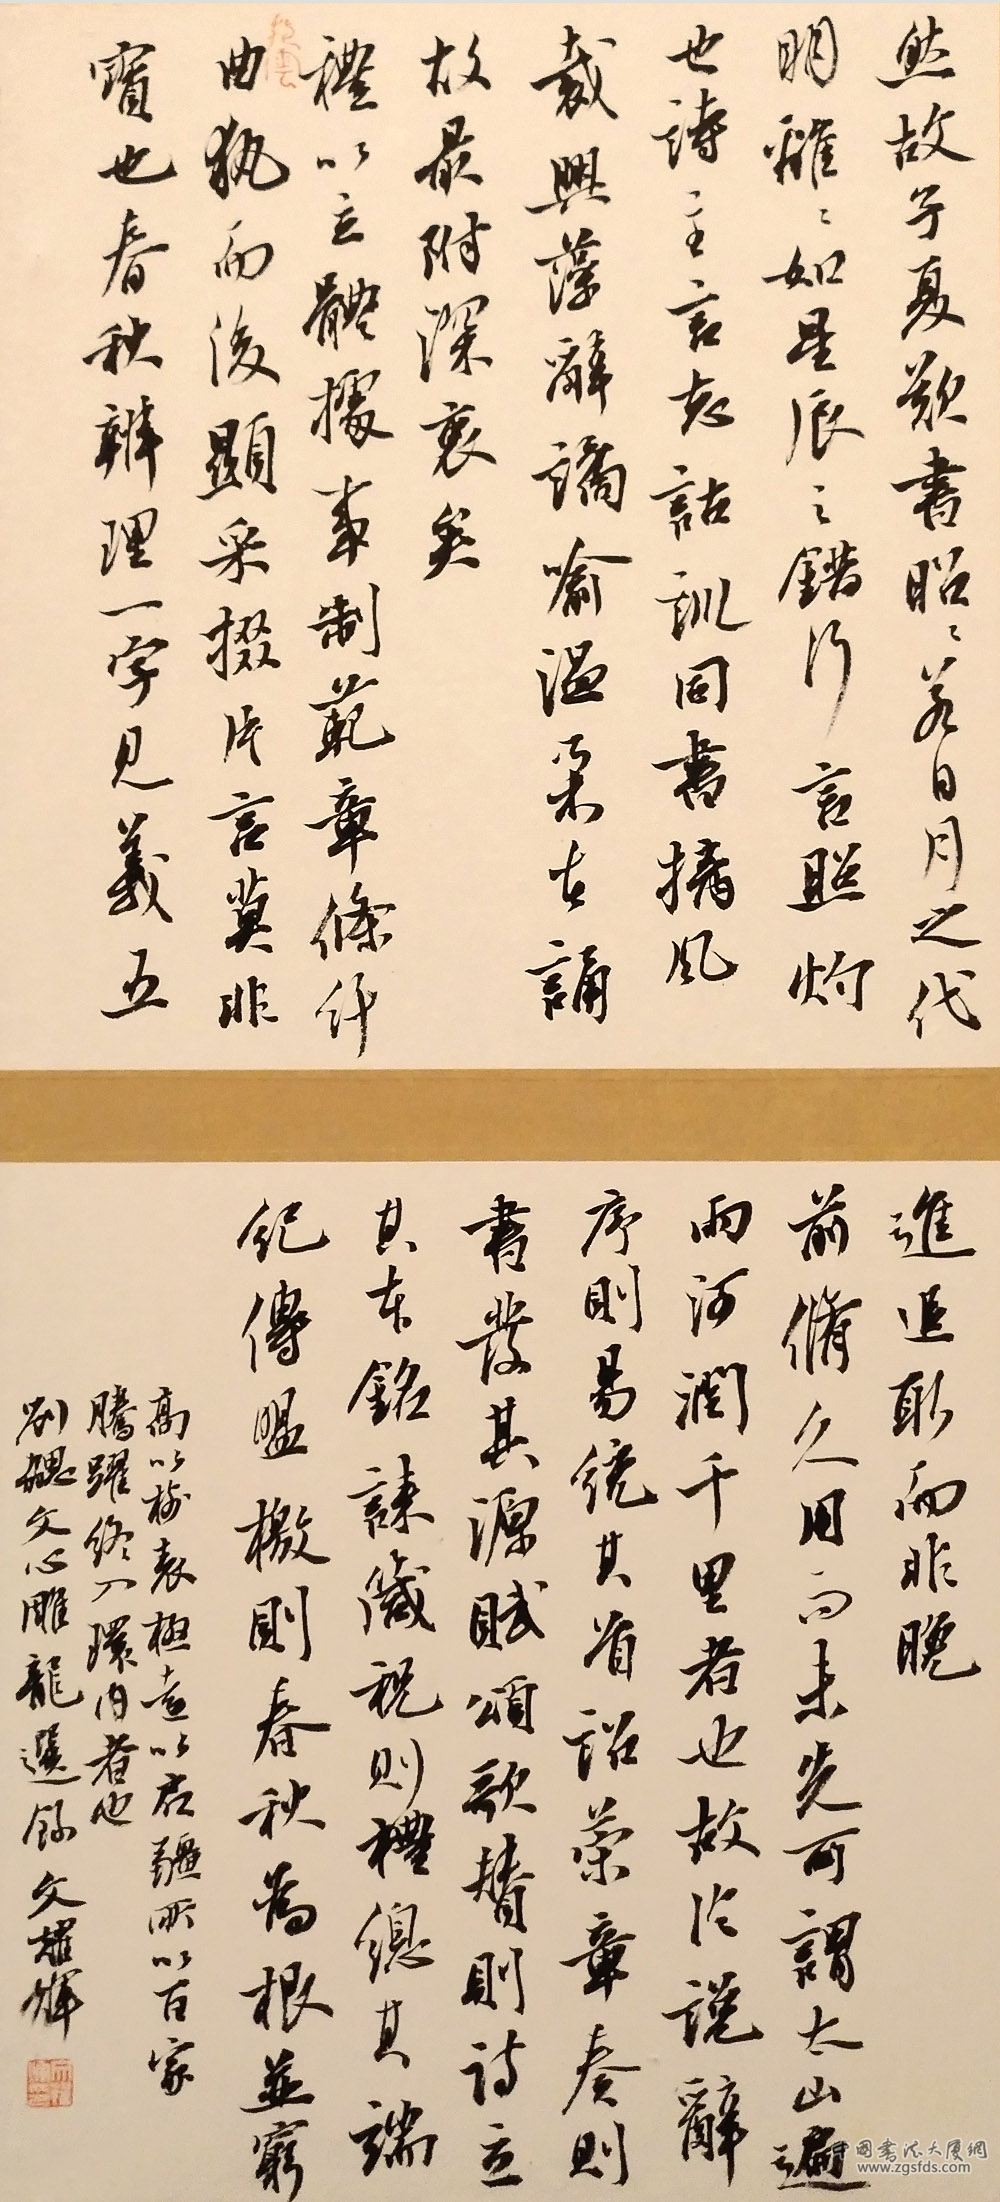 然故子夏歎書昭〻若日月之代
明離〻如星辰之錯行言照灼
也詩主言志詁訓同書摛風
裁興藻辭譎喻溫柔在誦
故最附深衷矣
禮以立體據事制範章條纤
曲執而後顯采掇片言莫非
寶也春秋辨理一字見義五
進追取而非晚
前脩久用而未先可謂太山遍
雨河潤千里者也故论說辭
序則易統其首詔策章奏則
書發其源賦頌歌贊則詩立
其本銘誄箴祝則禮總其端
紀傳盟檄則春秋為根並窮
高以樹表極遠以启疆所以百家
騰躍終入環內者也
刘勰文心雕龍選錄文耀輝
中国书法大厦網
www.zgsfds.com